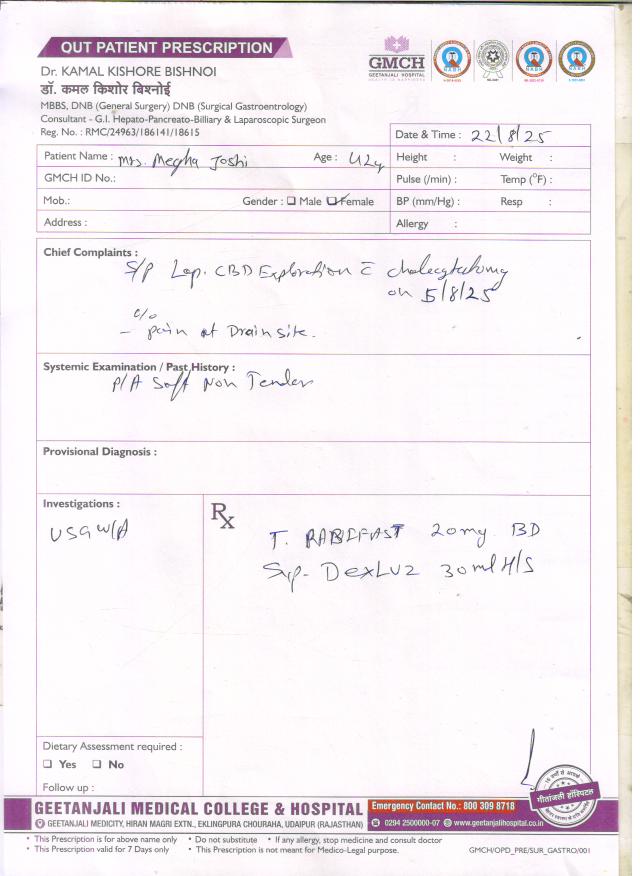 OUT PATIENT PRESCRIPTION
Dr. KAMAL KISHORE BISHNOI
डॉ. कमल किशोर बिश्नोई
MBBS, DNB (General Surgery) DNB (Surgical Gastroentrology)
Consultant - G.I. Hepato-Pancreato-Billiary & Laparoscopic Surgeon
Reg. No. : RMC/24963/186141/18615
GMCH
GEETANJALI HOSPITAL
Date & Time : 22/8/25
Patient Name : Mrs. Megha Joshi Age : 42y
Height : Weight :
GMCH ID No.:
Pulse (/min) : Temp (°F) :
Mob.: Gender : Male Female
BP (mm/Hg) : Resp :
Address :
Allergy :
Chief Complaints :
S/P Lap. CBD Exploration c̄ cholecystectomy
on 5/8/25
c/o
- pain at Drain site.
Systemic Examination / Past History :
P/A Soft Non Tender
Provisional Diagnosis :
Investigations :
USG W/A
Rx
T. RABIFAST 20mg BD
Syp. DEXLUZ 30ml H/S
Dietary Assessment required :
Yes No
Follow up :
गीतांजली हॉस्पिटल
GEETANJALI MEDICAL COLLEGE & HOSPITAL
Emergency Contact No.: 800 309 8718
GEETANJALI MEDICITY, HIRAN MAGRI EXTN., EKLINGPURA CHOURAHA, UDAIPUR (RAJASTHAN)
0294 2500000-07 www.geetanjalihospital.co.in
• This Prescription is for above name only • Do not substitute • If any allergy, stop medicine and consult doctor
• This Prescription valid for 7 Days only • This Prescription is not meant for Medico-Legal purpose.
GMCH/OPD_PRE/SUR_GASTRO/001